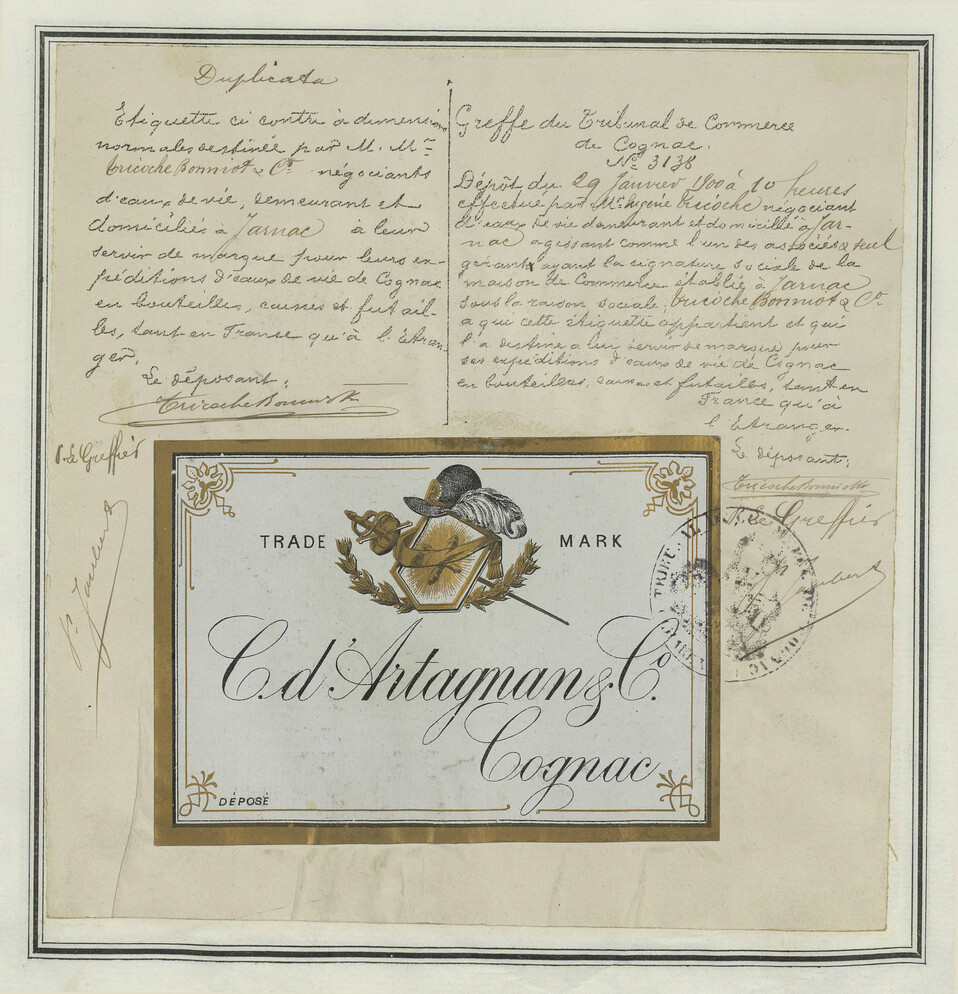 Duplicata
Etiquette ci contre à dimensions
normales destinée par M. Mrs
Tricoche Bonniot & Cie négociants
d'eaux de vie, demeurant et
domiciliés à Jarnac à leur
servir de marque pour leurs ex-
péditions d'eaux de vie de Cognac
en bouteilles, caisses et futail-
les, tant en France qu'à l'Etran-
ger.
Le déposant:
Tricoche Bonniot & Co
P. Le Greffier
Greffe du Tribunal de Commerce
de Cognac.
No 3138
Dépôt du 29 Janvier 1900 à 10 heures
effectué par Mr Eugène Tricoche négociant
d'eaux de vie demeurant et domicilié à Jar-
nac agissant comme l'un des associés & seul
gérant ayant la signature sociale de la
maison de Commerce établie à Jarnac
sous la raison sociale, Tricoche Bonniot & Co
a qui cette étiquette appartient et qui
l'a destine a lui servir de marque pour
ses expéditions d'eaux de vie de Cognac
en bouteilles, caisses et futailles, tant en
France qu'à
l'Etranger.
Le déposant:
Tricoche Bonniot & Co
P. Le Greffier
TRADE MARK
C. d'Artagnan & Co.
Cognac
DÉPOSÉ